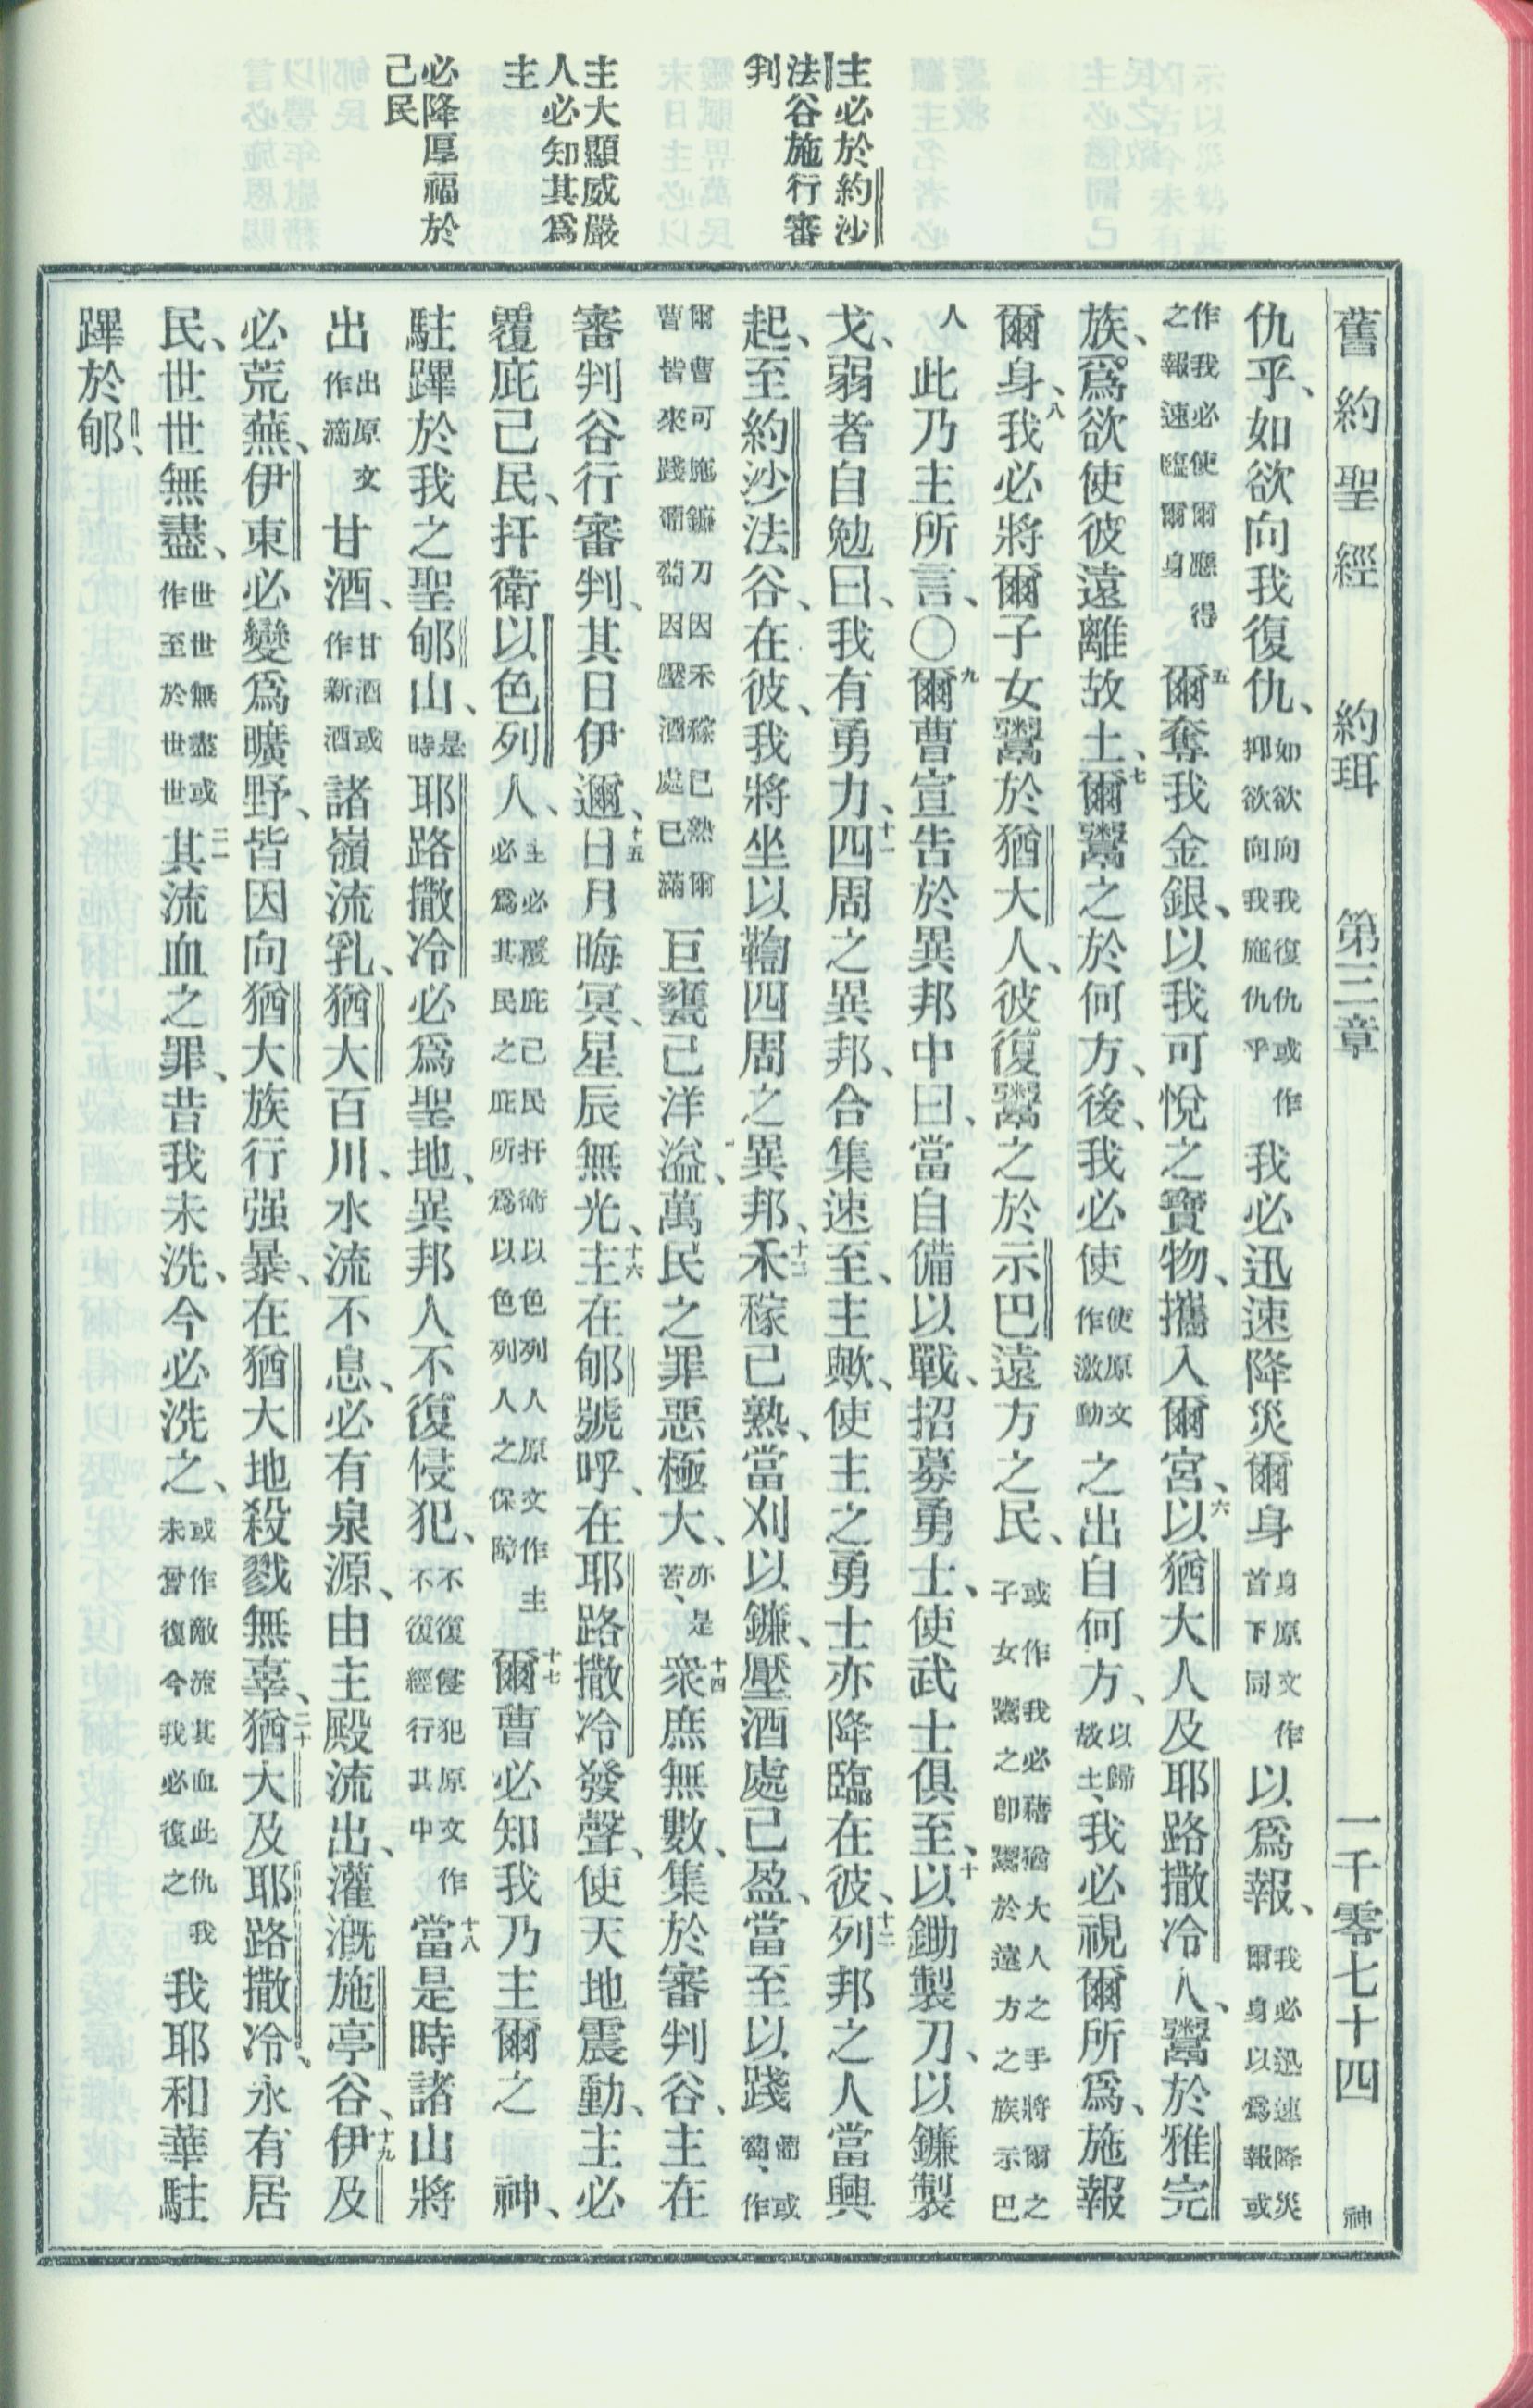 舊約聖經 約珥 第三章 一千零七十四 神
主必於約沙
法谷施行審
判
主大顯威嚴
人必知其爲
主
必降厚福於
己民
仇乎、如欲向我復仇、如欲向我復仇或作抑欲向我施仇乎我必迅速降災爾身身原文作首下同以爲報、我必迅速降災爾身以爲報或
作我必使爾應得之報速臨爾身五爾奪我金銀、以我可悅之寶物、攜入爾宮、六以猶大人及耶路撒冷人、鬻於雅完
族、爲欲使彼遠離故土、七爾鬻之於何方、後、我必使使原文作激動之出自何方、以歸故土、我必視爾所爲、施報
爾身、八我必將爾子女鬻於猶大人、彼復鬻之於示巴遠方之民、或作我必藉猶大人之手將爾之子女鬻之卽鬻於遠方之族示巴
人此乃主所言、〇九爾曹宣告於異邦中曰、當自備以戰、招募勇士、使武士俱至、十以鋤製刀、以鐮製
戈、弱者自勉曰、我有勇力、十一四周之異邦、合集速至、主歟、使主之勇士亦降臨在彼、十二列邦之人當興
起、至約沙法谷、在彼、我將坐以鞫四周之異邦、十三禾稼已熟、當刈以鐮、壓酒處已盈、當至以踐葡萄、或作
爾曹可施鐮刀因禾稼已熟爾曹皆來踐葡萄因壓酒處已滿巨甕已洋溢、萬民之罪惡極大、亦若是、十四衆庶無數、集於審判谷、主在
審判谷行審判、其日伊邇、十五日月晦冥、星辰無光、十六主在郇號呼、在耶路撒冷發聲、使天地震動、主必
覆庇己民、扞衛以色列人、主必覆庇己民扞衛以色列人原文作主必爲其民之庇所爲以色列人之保障十七爾曹必知我乃主爾之神、
駐蹕於我之聖郇山、是時耶路撒冷必爲聖地、異邦人不復侵犯、不復侵犯原文作不復經行其中十八當是時諸山將
出出原文作滴甘酒、甘酒或作新酒諸嶺流乳、猶大百川、水流不息、必有泉源、由主殿流出、灌溉施亭谷、十九伊及
必荒蕪、伊東必變爲曠野、皆因向猶大族行强暴、在猶大地殺戮無辜、二十猶大及耶路撒冷、永有居
民、世世無盡、世世無盡或作至於世世二一其流血之罪、昔我未洗、今必洗之、或作敵流其血此仇我未曾復今我必復之我耶和華駐
蹕於郇、